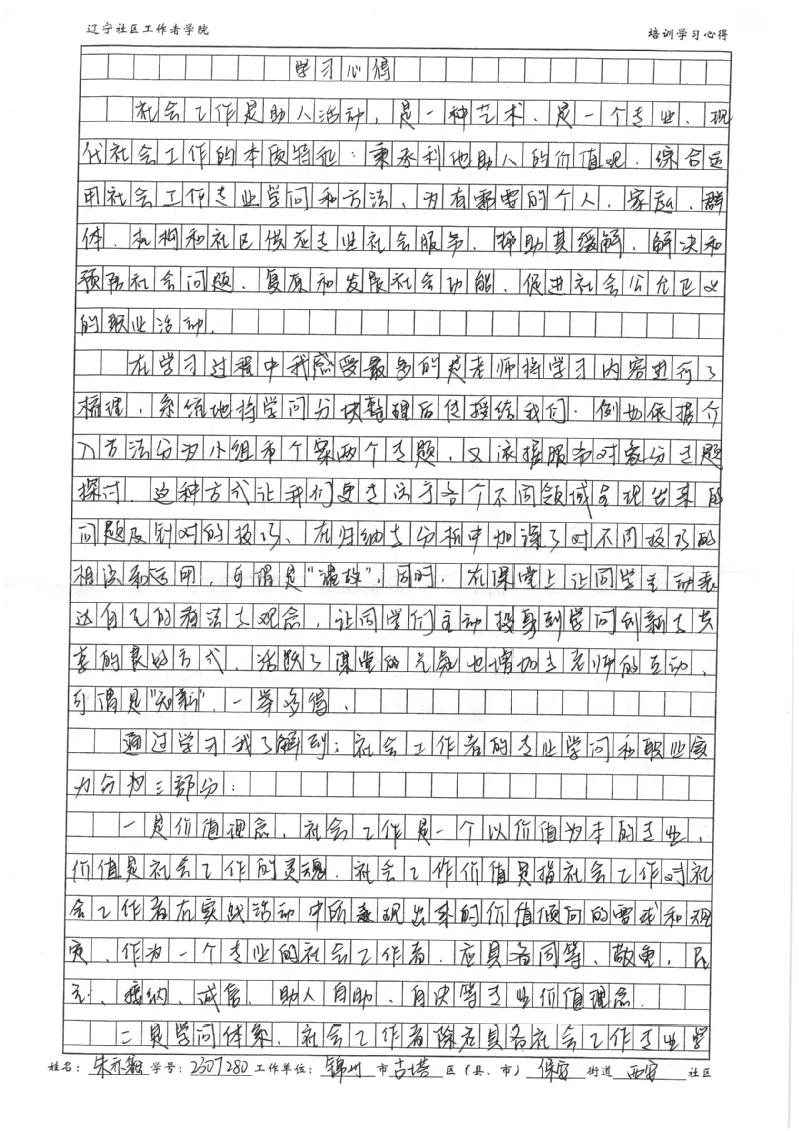 辽宁社区工作者学院 培训学习心得
学习心得
社会工作是助人活动,是一种艺术、是一个专业、现
代社会工作的本质特征:秉承利他助人的价值观、综合运
用社会工作专业学问和方法、为有需要的个人、家庭、群
体、机构和社区供应专业社会服务、帮助其缓解、解决和
预防社会问题、复原和发展社会功能、促进社会公允正义
的职业活动.
在学习过程中我感受最多的是老师将学习内容进行了
梳理,系统地将学问分块整理后传授给我们.例如依据介
入方法分为小组和个案两个专题,又依据服务对象分专题
探讨.这种方式让我们更专注于各个不同领域呈现出来的
问题及针对的技巧、在归纳与分析中加深了对不同技巧的
相识和运用,可谓是"温故",同时.在课堂上让同学主动表
达自己的看法与观念,让同学们主动投身到学问创新与共
享的良好方式、活跃了课堂的元气也增加与老师的互动、
可谓是"知新".一举多得、
通过学习我了解到:社会工作者的专业学问和职业实
力分为三部分:
一是价值理念.社会工作是一个以价值为本的专业,
价值是社会工作的灵魂.社会工作价值是指社会工作对社
会工作者在实践活动中所表现出来的价值倾向的要求和规
定、作为一个专业的社会工作者.应具备同等、敬重、民
主、接纳、诚信、助人自助、自决等专业价值理念.
二是学问体系.社会工作者除应具备社会工作专业学
姓名:朱亦 学号:2307280 工作单位:锦州市古塔区(县、市)保安街道西安社区